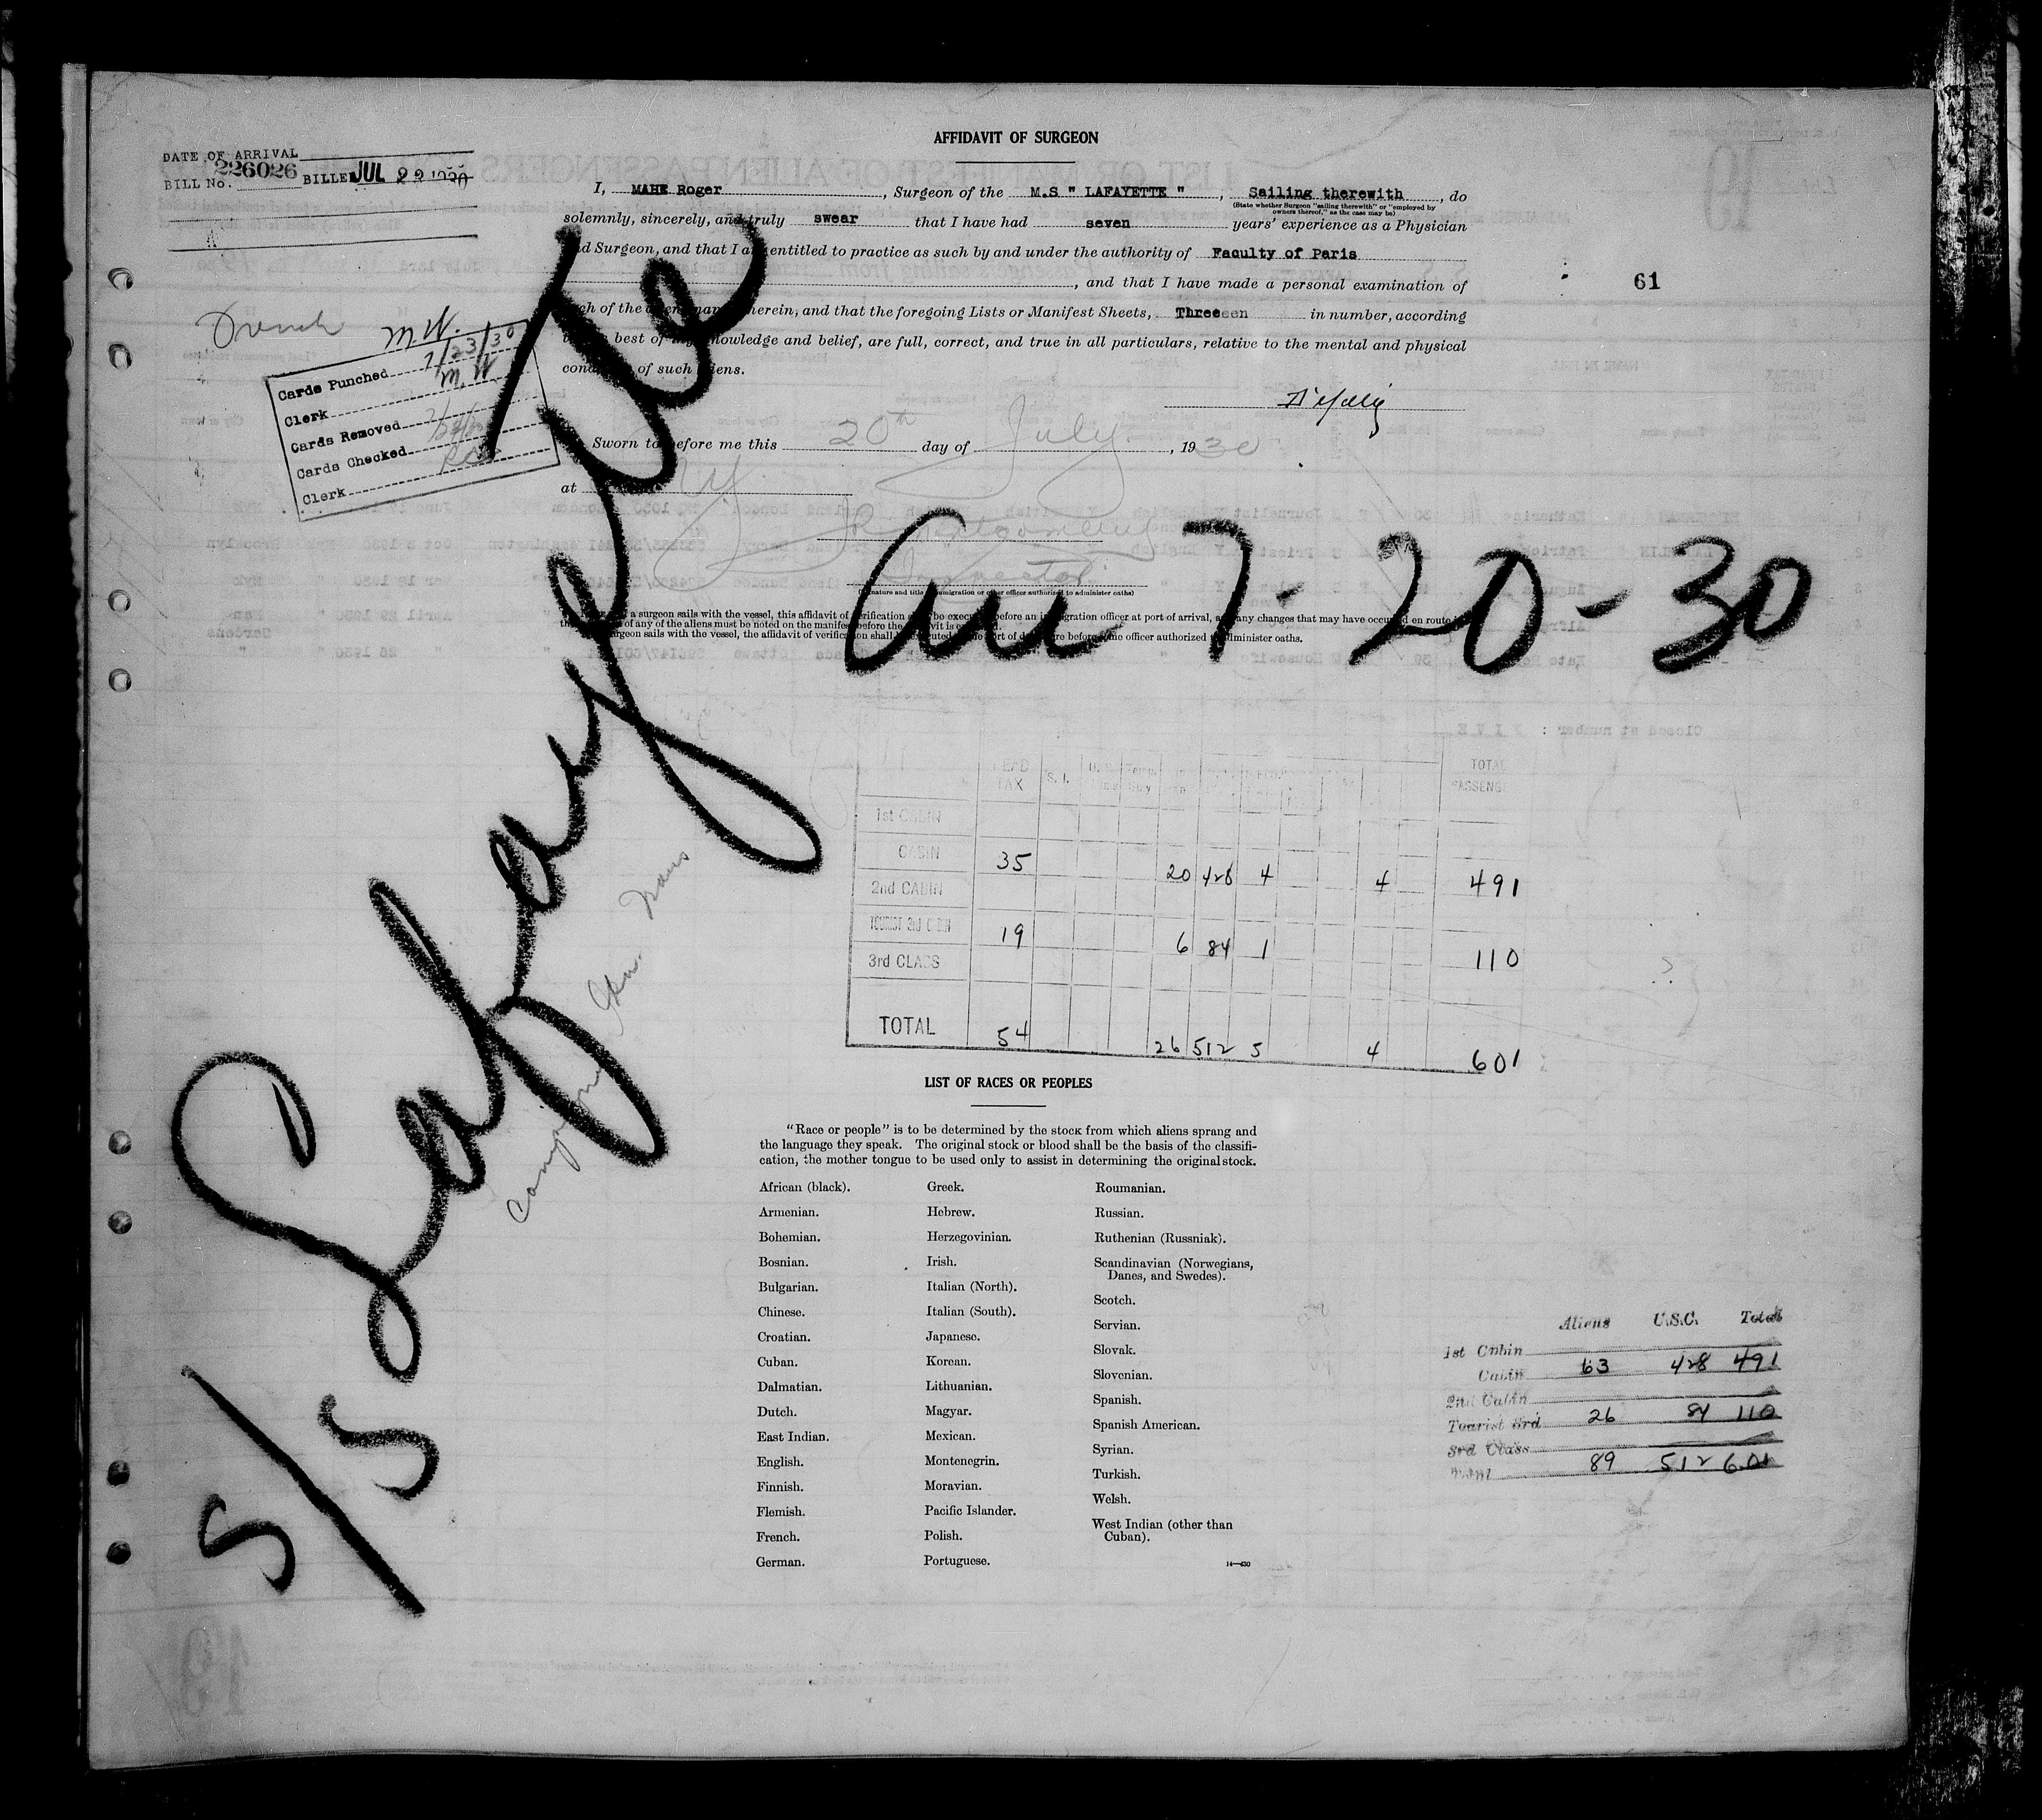 AFFIDAVIT OF SURGEON
DATE OF ARRIVAL
BILL No. 226026 BILLED JUL 22 1930
I, MAHE Roger, Surgeon of the M.S " LAFAYETTE ", Sailing therewith, do
(State whether Surgeon "sailing therewith" or "employed by
owners thereof," as the case may be)
solemnly, sincerely, and truly swear that I have had seven years' experience as a Physician
and Surgeon, and that I am entitled to practice as such by and under the authority of Faculty of Paris
, and that I have made a personal examination of
61
each of the aliens named herein, and that the foregoing Lists or Manifest Sheets, Threeeen in number, according
to the best of my knowledge and belief, are full, correct, and true in all particulars, relative to the mental and physical
condition of such aliens.
French
M.W.
Cards Punched 7/23/30
Clerk M.W
Cards Removed
Cards Checked
Clerk
Sworn to before me this 20th day of July, 1930
at N.Y.
Inspector
(Signature and title of immigration or other officer authorized to administer oaths)
a surgeon sails with the vessel, this affidavit of verification be executed before an immigration officer at port of arrival, and any changes that may have occurred en route
of any of the aliens must be noted on the manifest before the affidavit is executed.
surgeon sails with the vessel, the affidavit of verification shall be executed port of departure before some officer authorized to administer oaths.
S/S Lafayette
Arr 7-20-30
Compagnie Gen. Trans
HEAD TAX S. I. TOTAL PASSENG
1st CABIN
CABIN 35 20 428 4 4 491
2nd CABIN
TOURIST 3rd CABIN 19 6 84 1 110
3rd CLASS
TOTAL 54 26 512 5 4 601
LIST OF RACES OR PEOPLES
"Race or people" is to be determined by the stock from which aliens sprang and
the language they speak. The original stock or blood shall be the basis of the classifi-
cation, the mother tongue to be used only to assist in determining the original stock.
African (black).
Armenian.
Bohemian.
Bosnian.
Bulgarian.
Chinese.
Croatian.
Cuban.
Dalmatian.
Dutch.
East Indian.
English.
Finnish.
Flemish.
French.
German.
Greek.
Hebrew.
Herzegovinian.
Irish.
Italian (North).
Italian (South).
Japanese.
Korean.
Lithuanian.
Magyar.
Mexican.
Montenegrin.
Moravian.
Pacific Islander.
Polish.
Portuguese.
Roumanian.
Russian.
Ruthenian (Russniak).
Scandinavian (Norwegians,
Danes, and Swedes).
Scotch.
Servian.
Slovak.
Slovenian.
Spanish.
Spanish American.
Syrian.
Turkish.
Welsh.
West Indian (other than
Cuban).
14—430
Aliens U.S.C. Total
1st Cabin
Cabin 63 428 491
2nd Cabin
Tourist 3rd 26 84 110
3rd Class
Total 89 512 601